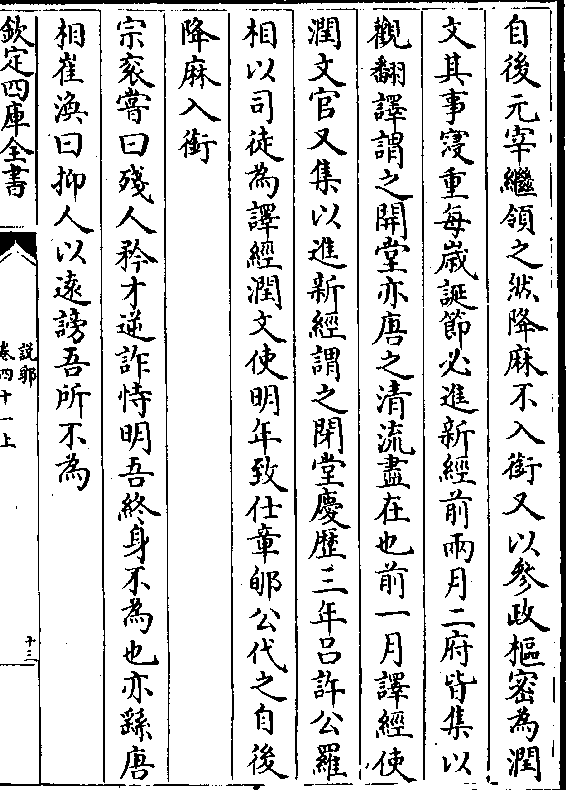 自後元宰繼領之然降麻不入銜又以參政樞密為潤
文其事寖重每嵗誕節必進新經前兩月二府皆集以
觀翻譯謂之開堂亦唐之清流盡在也前一月譯經使
潤文官又集以進新經謂之閉堂慶歴三年吕許公羅
相以司徒為譯經潤文使明年致仕章郇公代之自後
降麻入銜
宗衮嘗曰殘人矜才逆詐恃明吾終身不為也亦繇唐
相崔渙曰抑人以遠謗吾所不為
欽定四庫全書
説郛
卷四十一上
十三